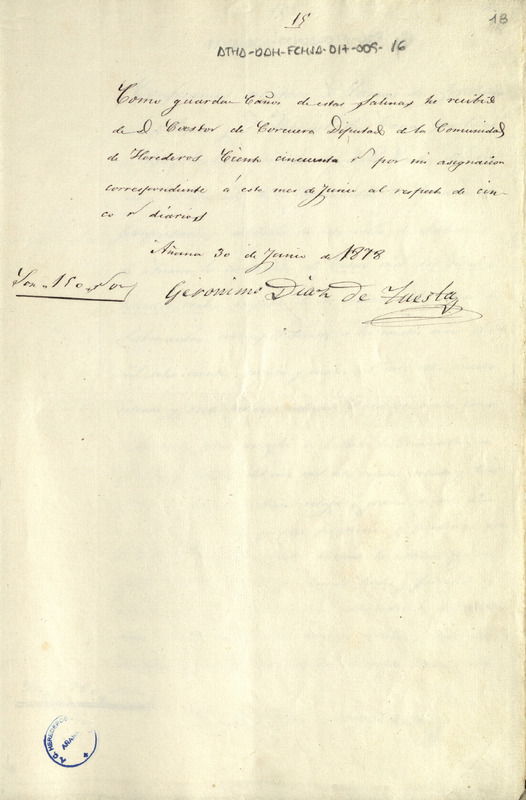 15
18
ATHA-DAH-FCHSA-D17-009-16
Como guarda Caños de estas Salinas he recibido
de D. Castor de Corcuera Diputado de la Comunidad
de Herederos Ciento cincuenta r.s por mi asignacion
correspondiente á este mes de Junio al respecto de cin-
co r.s diarios
Añana 30 de Junio de 1878
Son 150
Geronimo Diaz de Tuesta
HEREDEROS